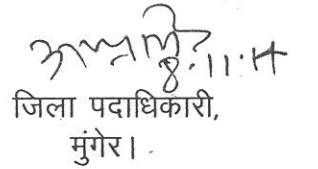 8.11.14
जिला पदाधिकारी,
मुंगेर।